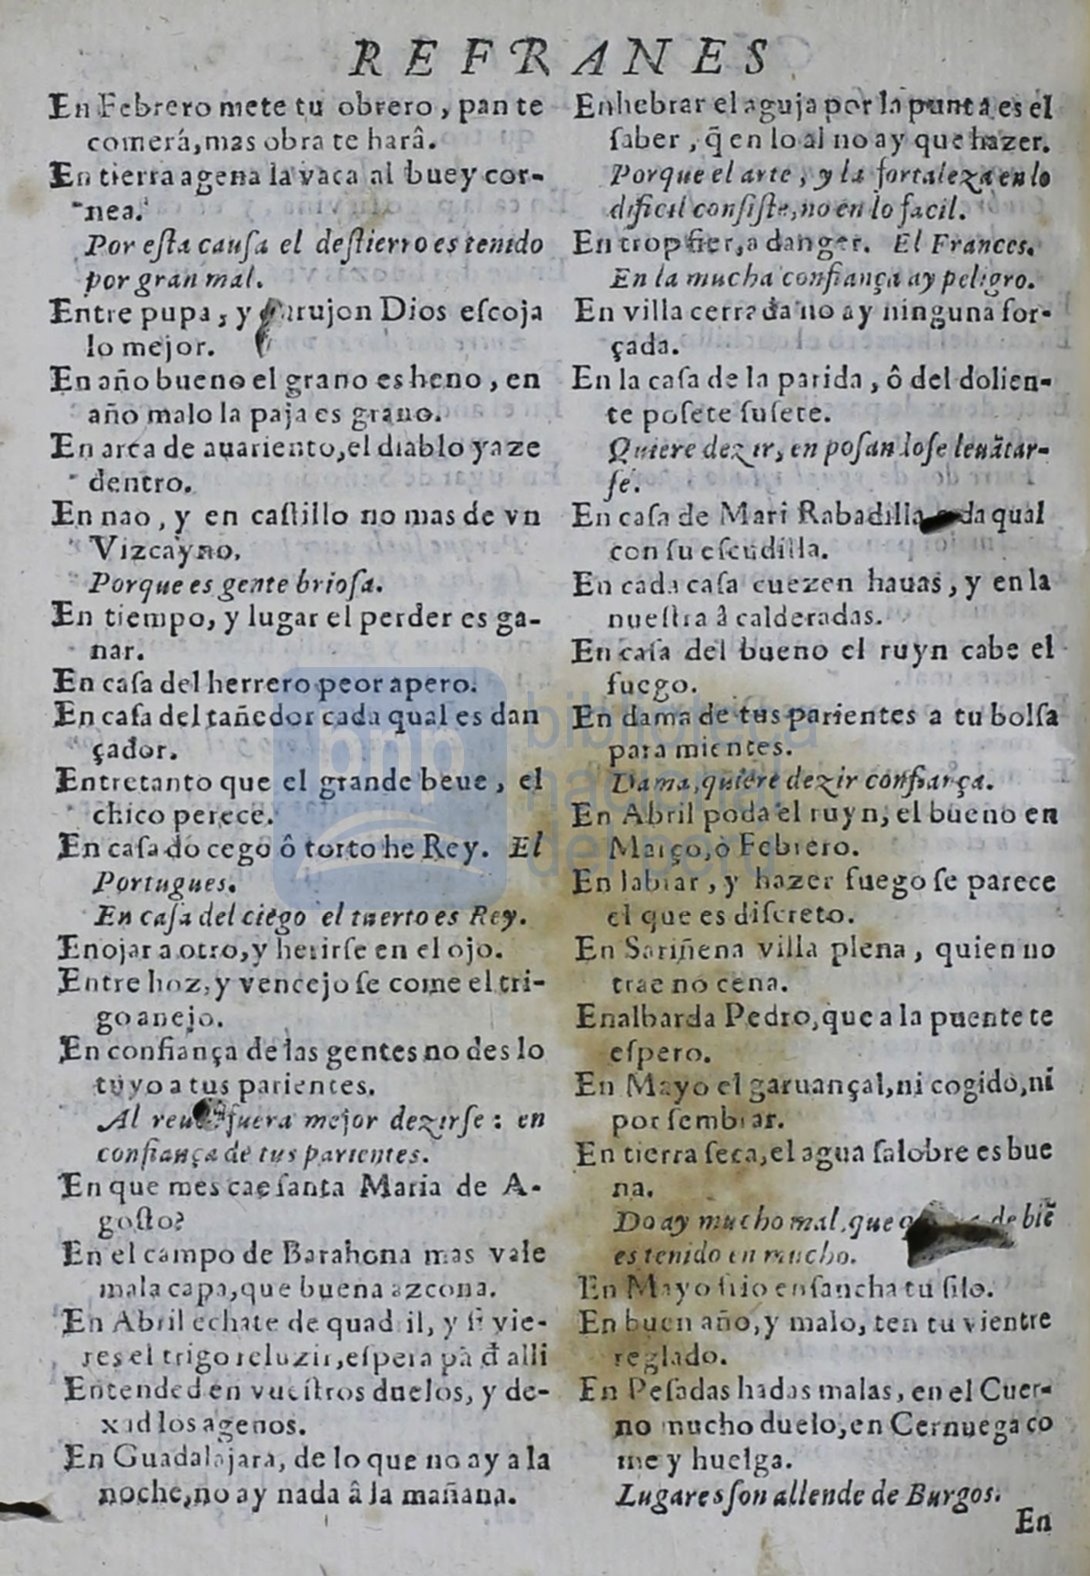 REFRANES
En Febrero mete tu obrero, pan te
comerá, mas obra te harâ.
En tierra agena la vaca al buey cor-
nea.
Por eſta cauſa el deſtierro es tenido
por gran mal.
Entre pupa, y rujon Dios eſcoja
lo mejor.
En año bueno el grano es heno, en
año malo la paja es grano.
En arca de auariento, el diablo yaze
dentro.
En nao, y en caſtillo no mas de vn
Vizcayno.
Porque es gente brioſa.
En tiempo, y lugar el perder es ga-
nar.
En caſa del herrero peor apero.
En caſa del tañedor cada qual es dan
çador.
Entretanto que el grande beue, el
chico perece.
En caſa do cego ô torto he Rey. El
Portugues.
En caſa del ciego el tuerto es Rey.
Enojar a otro, y herirſe en el ojo.
Entre hoz, y vencejo ſe come el tri-
go anejo.
En confiança de las gentes no des lo
tuyo a tus parientes.
Al reu fuera mejor dezirſe: en
confiança de tus parientes.
En que mes cae ſanta Maria de A-
goſto?
En el campo de Barahona mas vale
mala capa, que buena azcona.
En Abril echate de quadril, y ſi vie-
res el trigo reluzir, eſpera pā đ alli
Entended en vueſtros duelos, y de-
xad los agenos.
En Guadalajara, de lo que no ay a la
noche, no ay nada â la mañana.
Enhebrar el aguja por la punta es el
ſaber, q̃ en lo al no ay que hazer.
Porque el arte, y la fortaleza en lo
dificil conſiſte, no en lo facil.
En trop fier, a danger. El Frances.
En la mucha confiança ay peligro.
En villa cerrada no ay ninguna for-
çada.
En la caſa de la parida, ô del dolien-
te poſete ſuſete.
Quiere dezir, en poſandoſe leuātar-
ſe.
En caſa de Mari Rabadilla da qual
con ſu eſcudilla.
En cada caſa cuezen hauas, y en la
nueſtra â calderadas.
En caſa del bueno el ruyn cabe el
fuego.
En dama de tus parientes a tu bolſa
para mientes.
Dama, quiere dezir confiança.
En Abril poda el ruyn, el bueno en
Março, ò Febrero.
En labrar, y hazer fuego ſe parece
el que es diſcreto.
En Sariñena villa plena, quien no
trae no cena.
Enalbarda Pedro, que a la puente te
eſpero.
En Mayo el garuançal, ni cogido, ni
por ſembrar.
En tierra ſeca, el agua ſalobre es bue
na.
Do ay mucho mal, que de biē
es tenido en mucho.
En Mayo frio enſancha tu ſilo.
En buen año, y malo, ten tu vientre
reglado.
En Peſadas hadas malas, en el Cuer-
no mucho duelo, en Cernuega co
me y huelga.
Lugares ſon allende de Burgos.
En
bnp biblioteca
nacional
del perú